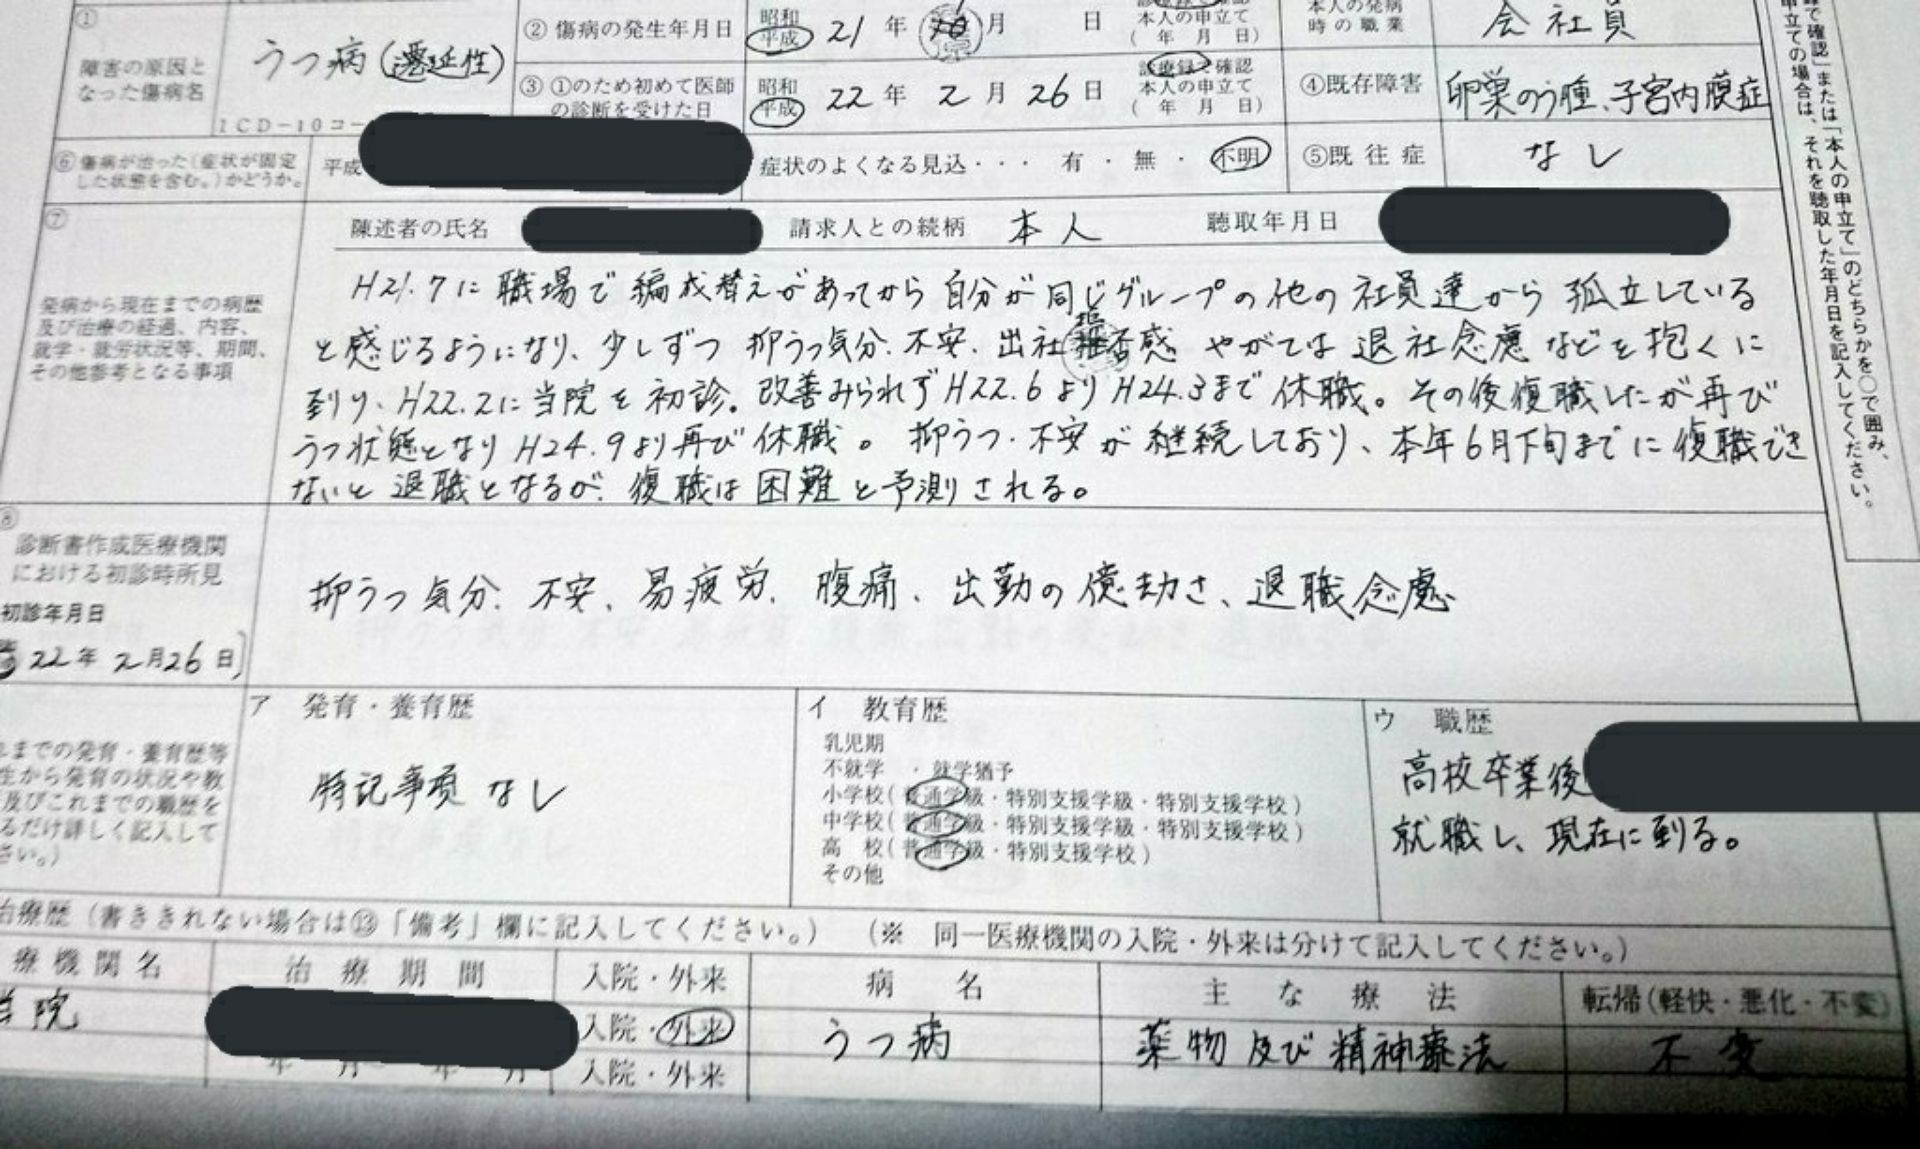 ①
障害の原因と
なった傷病名
うつ病(遷延性)
ICD-10コー
② 傷病の発生年月日
昭和
平成
21 年 月 日
本人の申立て
( 年 月 日)
本人の発病
時の職業
会社員
③ ①のため初めて医師
の診断を受けた日
昭和
平成
22 年 2 月 26 日
診療録で確認
本人の申立て
( 年 月 日)
④既存障害
卵巣のう腫、子宮内膜症
⑥ 傷病が治った(症状が固定
した状態を含む。)かどうか。
平成
症状のよくなる見込・・・ 有 ・ 無 ・ 不明
⑤既往症
なし
で確認」または「本人の申立て」のどちらかを○で囲み、
申立ての場合は、それを聴取した年月日を記入してください。
⑦
発病から現在までの病歴
及び治療の経過、内容、
就学・就労状況等、期間、
その他参考となる事項
陳述者の氏名 請求人との続柄 本人 聴取年月日
H21.7に職場で編成替えがあってから自分が同じグループの他の社員達から孤立している
と感じるようになり、少しずつ抑うつ気分、不安、出社拒否感 やがては退社念慮などを抱くに
到り、H22.2に当院を初診。改善みられずH22.6よりH24.3まで休職。その後復職したが再び
うつ状態となりH24.9より再び休職。抑うつ・不安が継続しており、本年6月下旬までに復職でき
ないと退職となるが、復職は困難と予測される。
⑧
診断書作成医療機関
における初診時所見
初診年月日
22年 2月26日
抑うつ気分、不安、易疲労、腹痛、出勤の億劫さ、退職念慮
れまでの発育・養育歴等
生から発育の状況や教
及びこれまでの職歴を
るだけ詳しく記入して
さい。)
ア 発育・養育歴
特記事項なし
イ 教育歴
乳児期
不就学 ・ 就学猶予
小学校(普通学級・特別支援学級・特別支援学校)
中学校(普通学級・特別支援学級・特別支援学校)
高 校(普通学級・特別支援学校)
その他
ウ 職歴
高校卒業後
就職し、現在に到る。
治療歴(書ききれない場合は⑬「備考」欄に記入してください。) (※ 同一医療機関の入院・外来は分けて記入してください。)
療機関名 治療期間 入院・外来 病名 主な療法 転帰(軽快・悪化・不変)
当院 入院・外来 うつ病 薬物及び精神療法 不変
年 月 ー 年 月 入院・外来